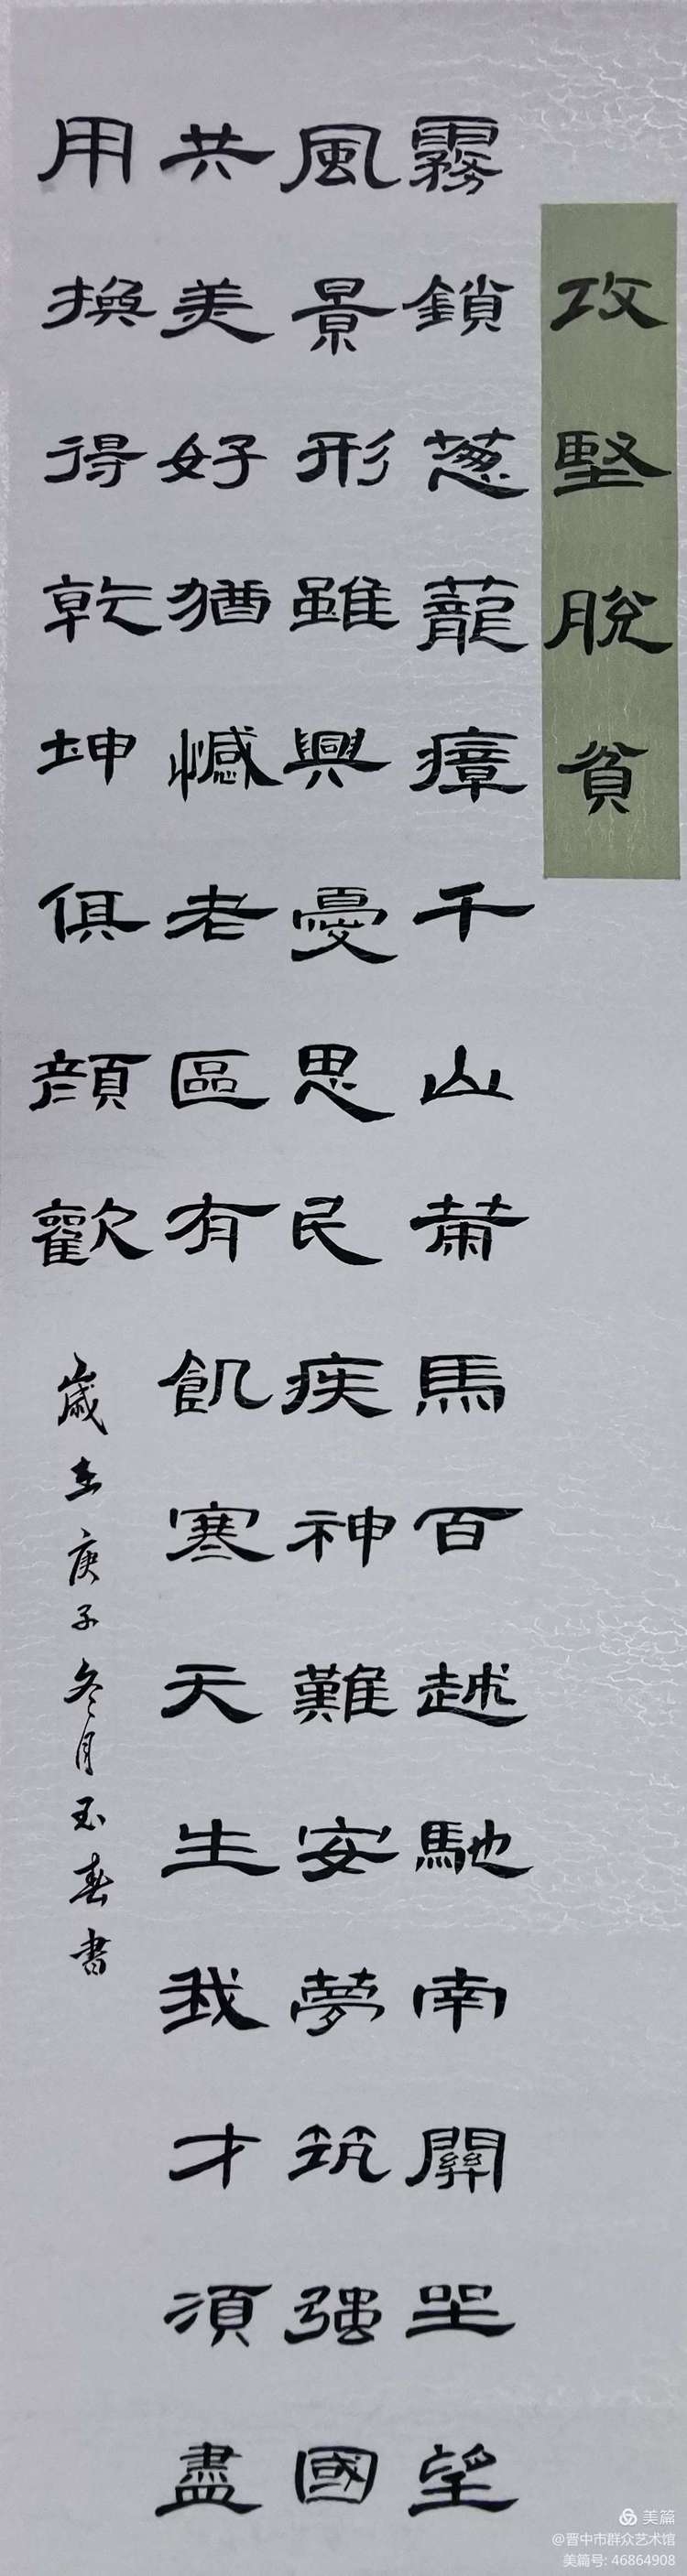 攻堅脫貧
霧鎖葱蘢瘴千山萧馬百越馳南關坐望
風景形雖興憂思民疾神難安夢筑强國
共美好猶憾老區有飢寒天生我才須盡
用換得乾坤俱顔歡
歲在庚子冬月玉春書
美篇
@晋中市群众艺术馆
美篇号: 46864908